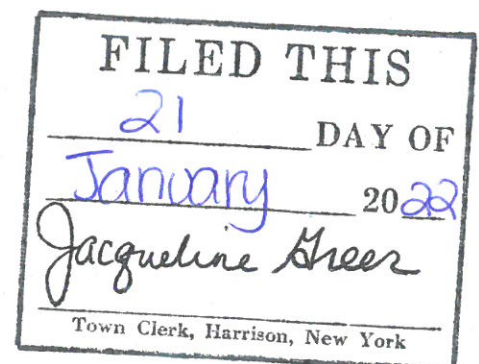 FILED THIS
21 DAY OF
January 2022
Jacqueline Greer
Town Clerk, Harrison, New York